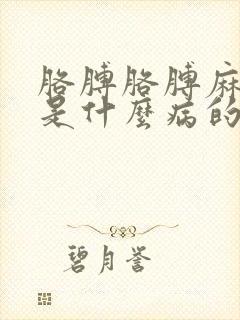 胳膊胳膊麻
是什麼病的
碧月誉